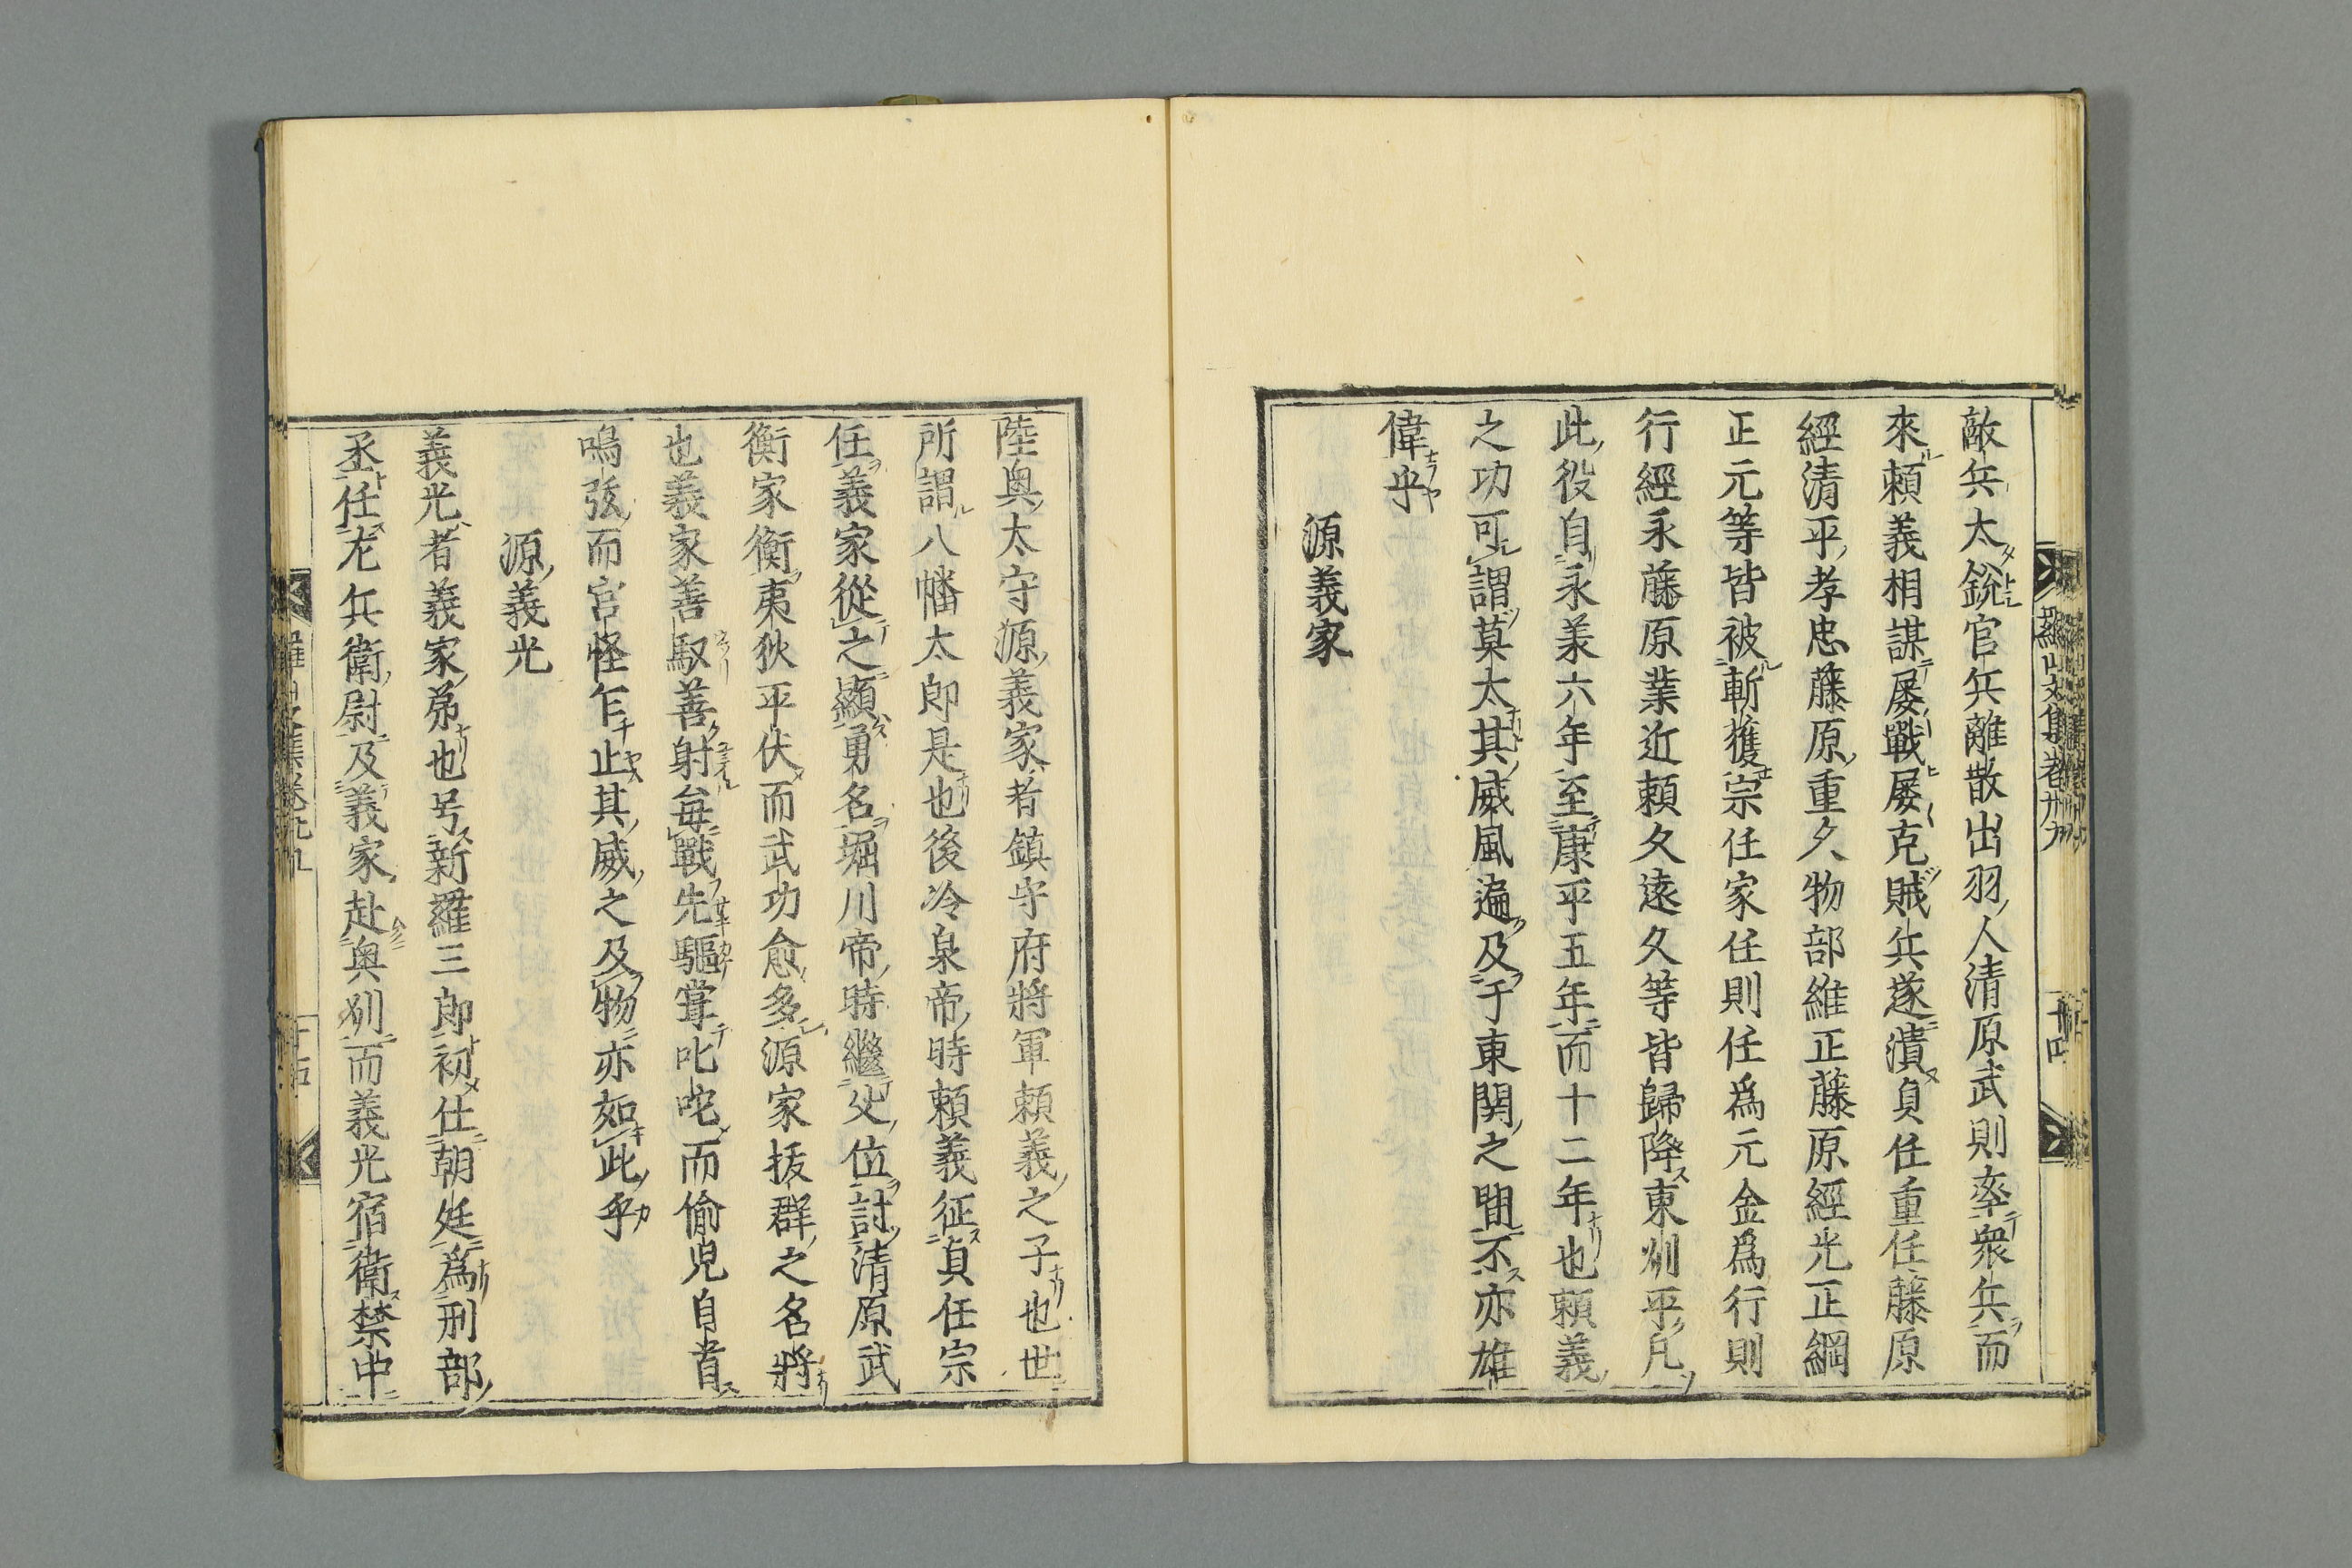 敵兵太銳官兵離散出羽人清原武則率衆兵而
來頼義相謀屡戰屡克賊兵遂潰貞任重任藤原
經清平孝忠藤原重久物部維正藤原經光正綱
正元等皆被斬獲宗任家任則任爲元金爲行則
行經永藤原業近頼久遠久等皆歸降東州平凡
此役自永美六年至康平五年而十二年也頼義
之功可謂莫太其威風遍及于東関之間不亦雄
偉乎
源義家
陸奥太守源義家者鎮守府將軍頼義之子也世
所謂八幡太郎是也後冷泉帝時頼義征貞任宗
任義家從之顯勇名堀川帝時繼父位討清原武
衡家衡夷狄平伏而武功愈多源家抜群之名將
也義家善馭善射毎戰先驅掌叱咤而偷児自首
鳴弦而宮怪乍止其威之及物亦如此乎
源義光
義光者義家弟也号新羅三郎初仕朝廷爲刑部
丞任左兵衛尉及義家赴奥州而義光宿衛禁中
羅山文集卷卅九
十四